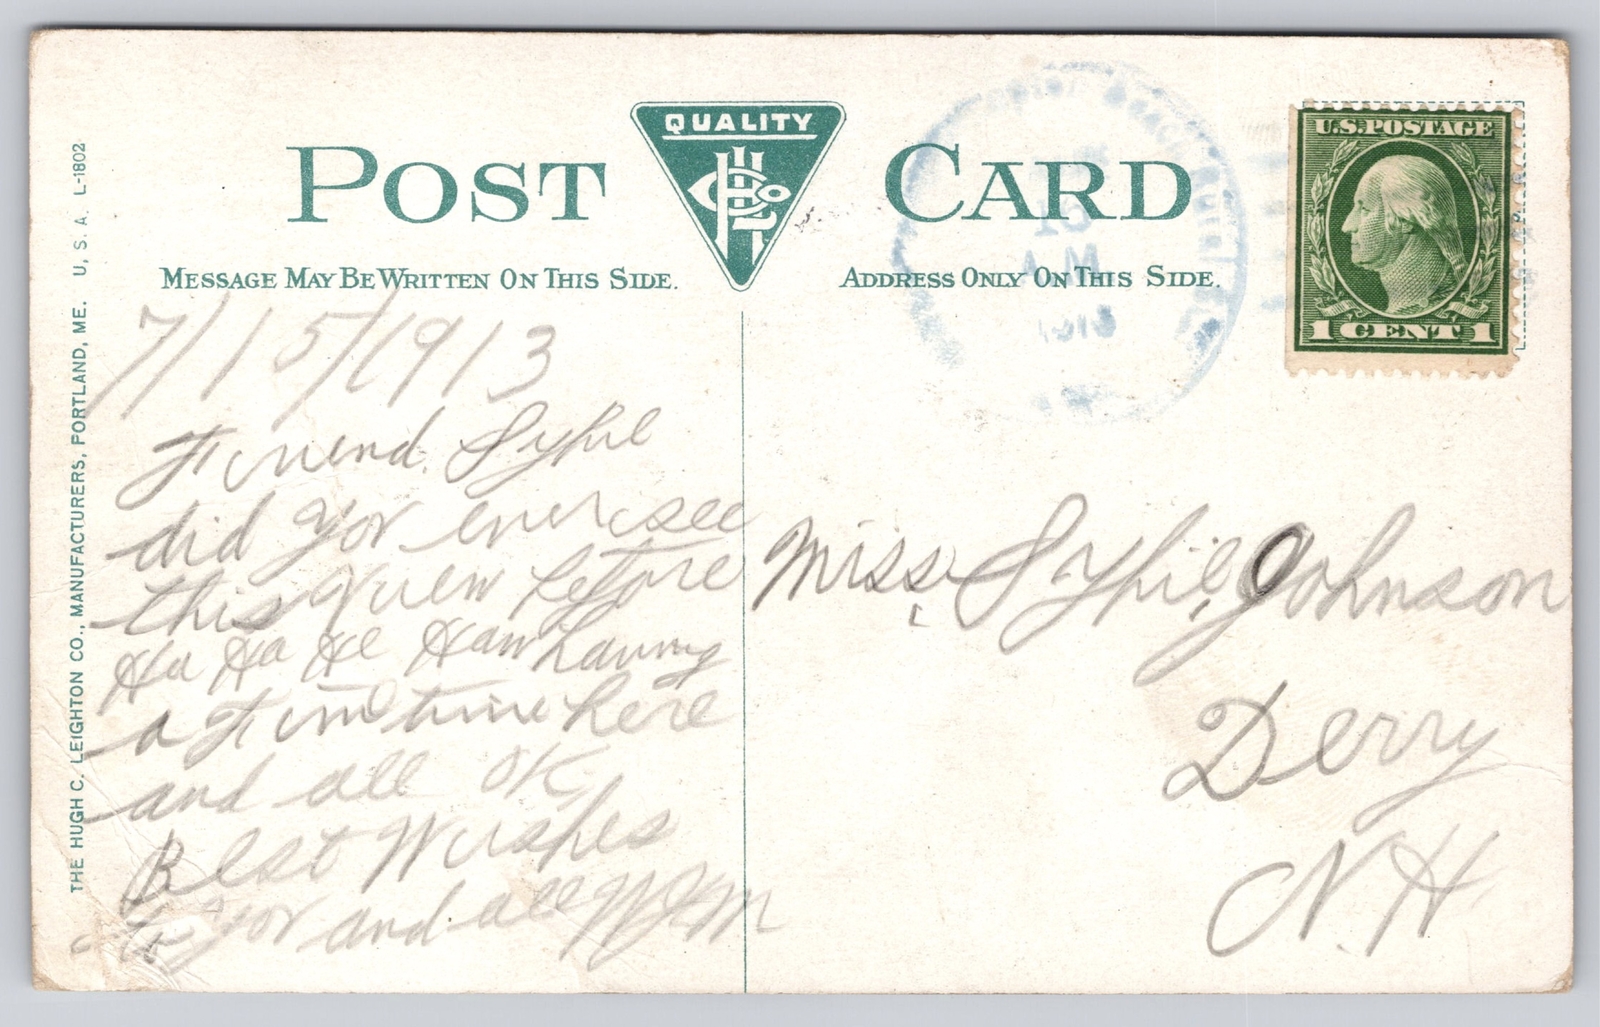 POST CARD
QUALITY
MESSAGE MAY BE WRITTEN ON THIS SIDE.
ADDRESS ONLY ON THIS SIDE.
U.S. POSTAGE
1 CENT 1
THE HUGH C. LEIGHTON CO., MANUFACTURERS, PORTLAND, ME. U. S. A. L-1802
7/15/1913
Friend Syphil
did yor ever see
this View before
Ha Ha He Haw having
a Fine time here
and all OK
Best Wishes
to yor and all WHM
Miss. Syphil, Johnson
Derry
N.H